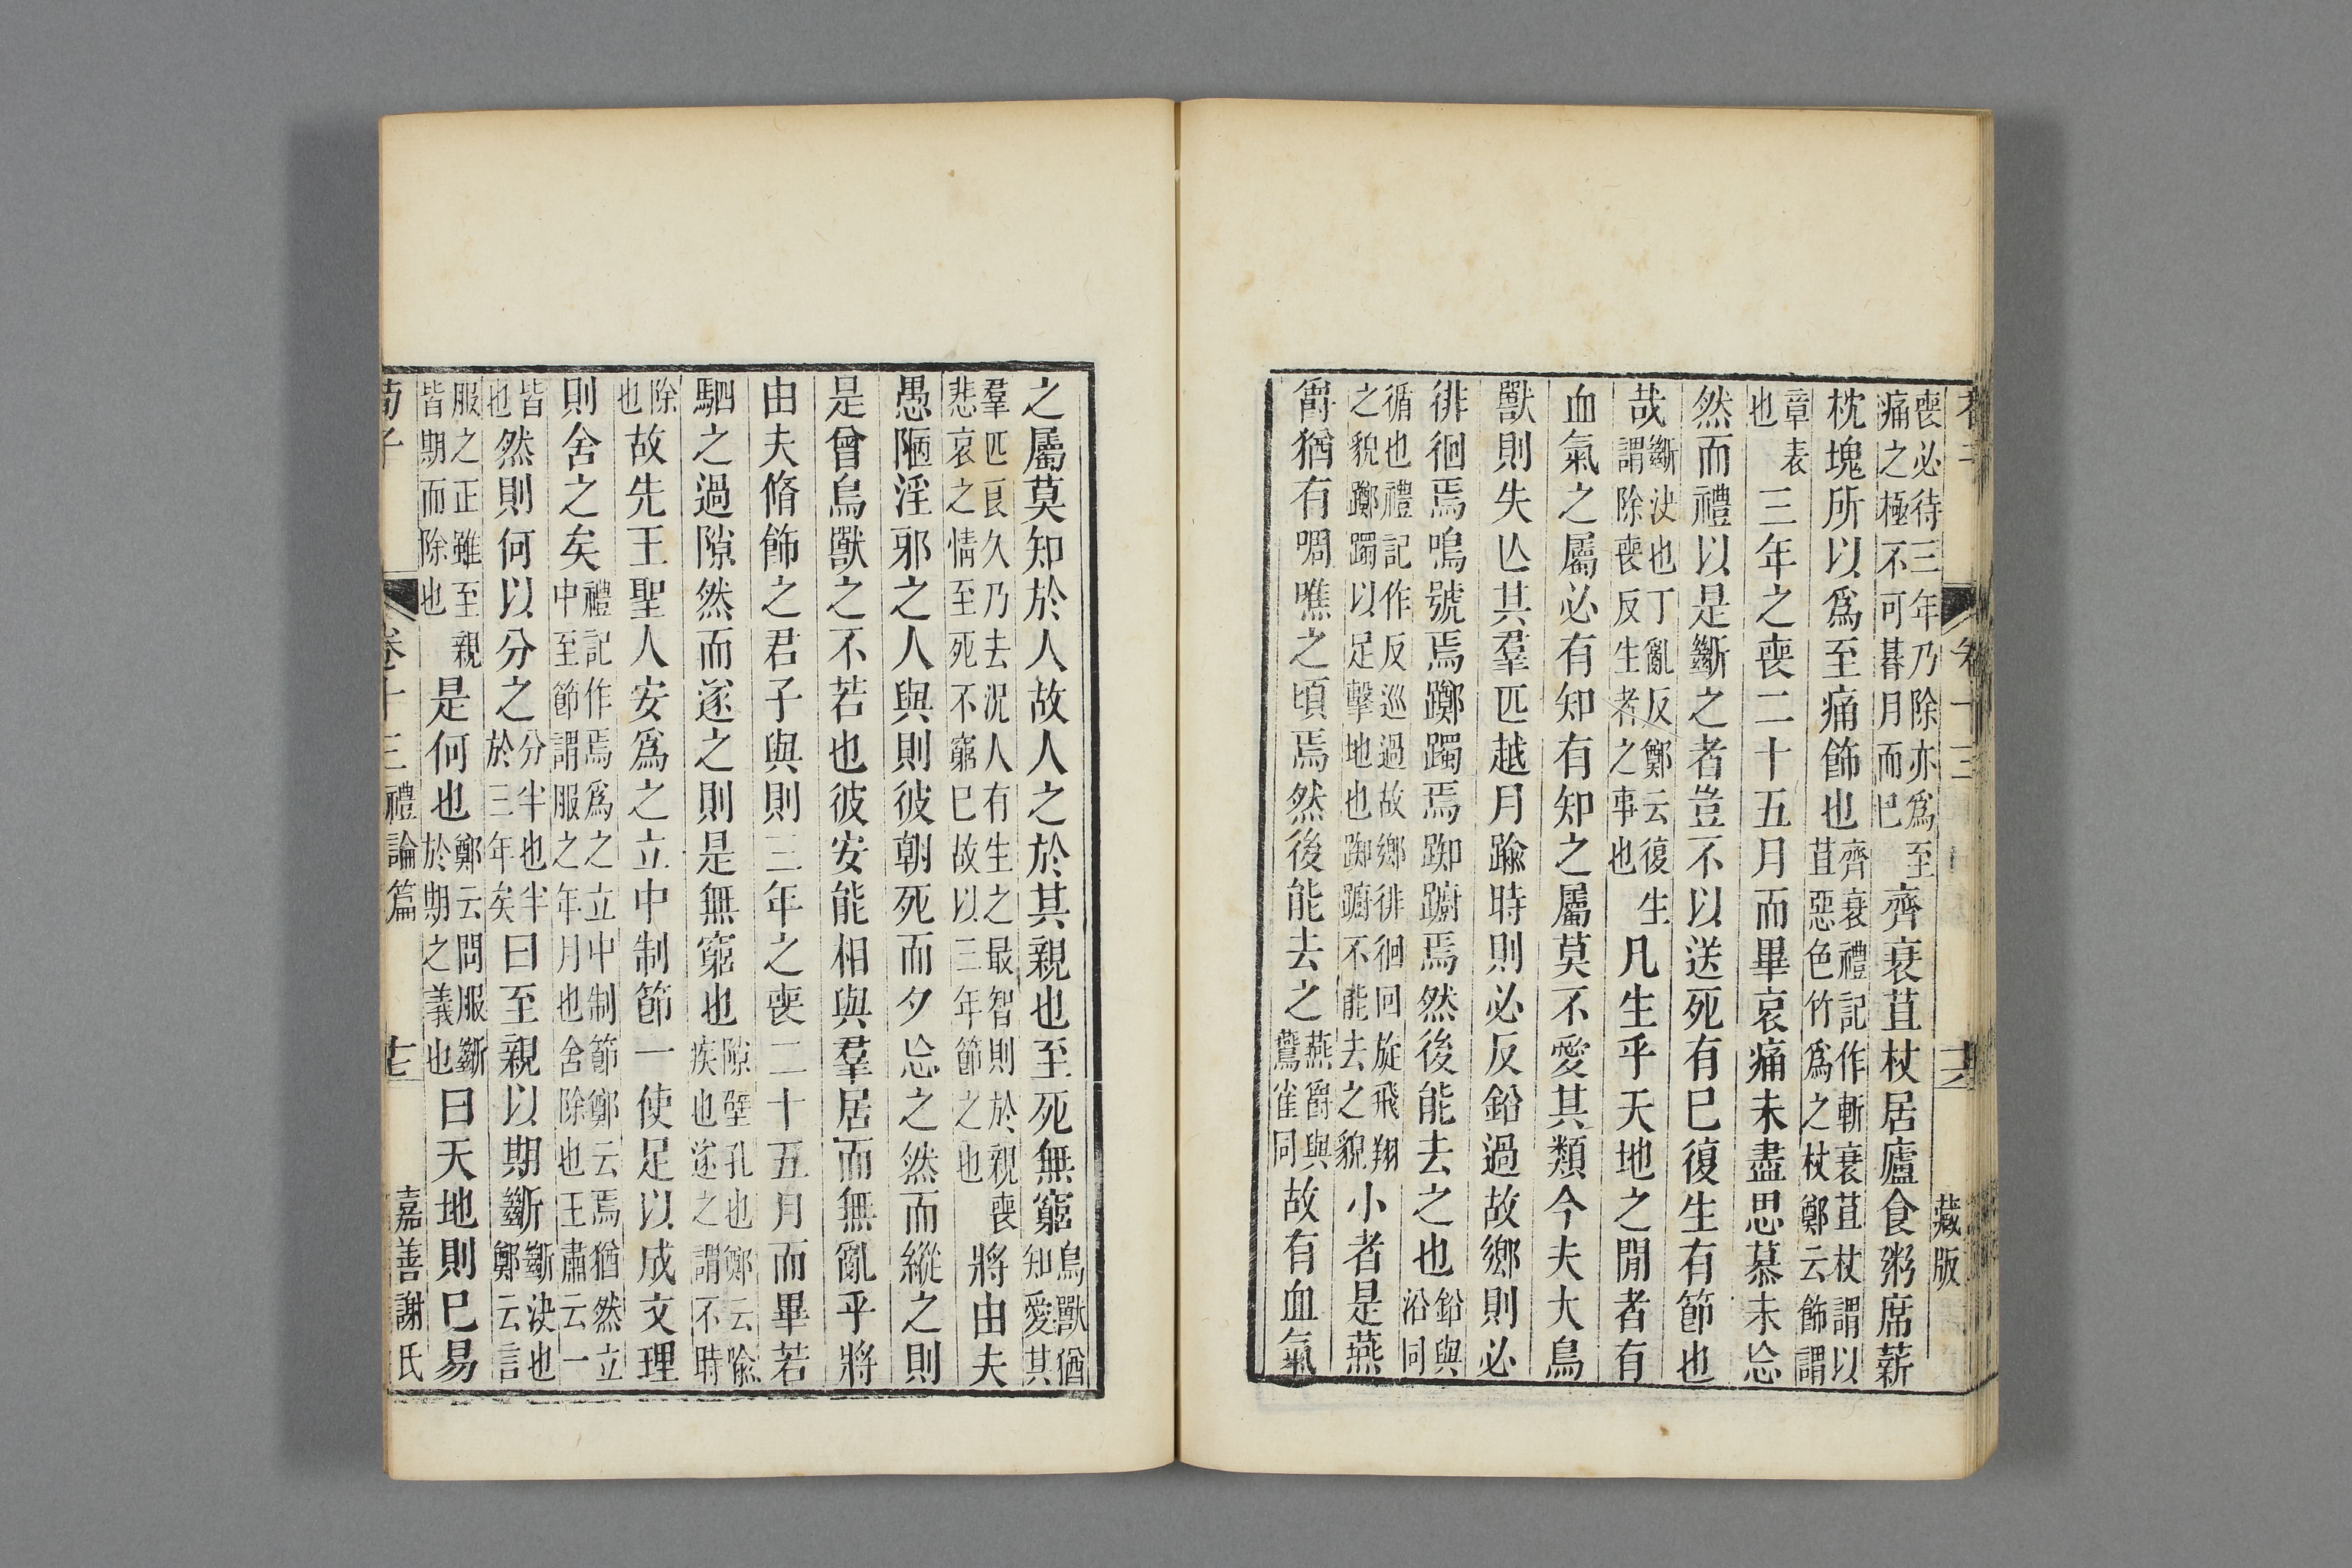 喪必待三年乃除亦爲至
痛之極不可朞月而巳
齊衰苴杖居廬食粥席薪
枕塊所以爲至痛飾也
齊衰禮記作斬衰苴杖謂以
苴惡色竹爲之杖鄭云飾謂
章表
也
三年之喪二十五月而畢哀痛未盡思慕未忘
然而禮以是斷之者豈不以送死有巳復生有節也
哉
斷決也丁亂反鄭云復生
謂除喪反生者之事也
凡生乎天地之閒者有
血氣之屬必有知有知之屬莫不愛其類今夫大鳥
獸則失亾其羣匹越月踰時則必反鉛過故鄉則必
徘徊焉鳴號焉躑躅焉踟躕焉然後能去之也
鉛與
沿同
循也禮記作反巡過故鄉徘徊回旋飛翔
之貌躑躅以足擊地也踟躕不能去之貌
小者是燕
爵猶有啁噍之頃焉然後能去之
燕爵與
鷰雀同
故有血氣
之屬莫知於人故人之於其親也至死無窮
鳥獸猶
知愛其
羣匹良久乃去況人有生之最智則於親喪
悲哀之情至死不窮巳故以三年節之也
將由夫
愚陋淫邪之人與則彼朝死而夕忘之然而縱之則
是曾鳥獸之不若也彼安能相與羣居而無亂乎將
由夫脩飾之君子與則三年之喪二十五月而畢若
駟之過隙然而遂之則是無窮也
隙壁孔也鄭云喻
疾也遂之謂不時
除
也
故先王聖人安爲之立中制節一使足以成文理
則舍之矣
禮記作焉爲之立中制節鄭云焉猶然立
中至節謂服之年月也舍除也王肅云一
皆
也
然則何以分之
分半也半
於三年矣
曰至親以期斷
斷決也
鄭云言
服之正雖至親
皆期而除也
是何也
鄭云問服斷
於期之義也
曰天地則巳易
荀子
卷十三禮論篇
嘉善謝氏
藏版